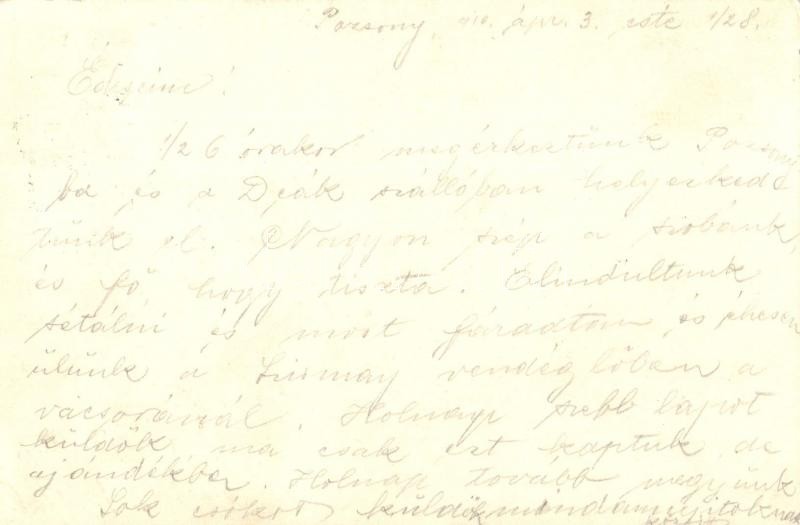 Pozsony, 910. ápr. 3. este 1/28.
Édeseim!
1/2 6 órakor megérkeztünk Pozsony
ba és a Deák szállóban helyezked
tünk el. Nagyon szép a szobánk,
és fő hogy tiszta. Elindultunk
sétálni és most fáradtan és éhesen
ülünk a vendéglőben a
vácsoránál. Holnap szebb lapot
küldök ma csak ezt kaptuk de
ajándékba. Holnap tovább megyünk
Sok csókot küldök mindannyitoknak